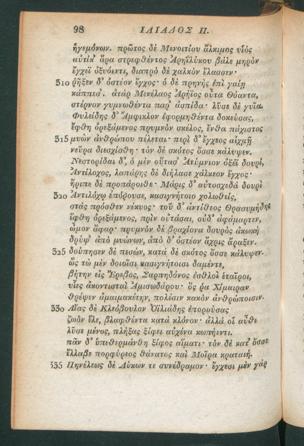 98 ΙΛΙΑΔΟΣ Π.
ἡγεμόνων. πρῶτος δὲ Μενοιτίου ἄλκιμος υἱὸς
αὐτίκ' ἄρα στρεφθέντος Ἀρηϊλύκου βάλε μηρὸν
ἔγχεϊ ὀξυόεντι, διαπρὸ δὲ χαλκὸν ἔλασσεν·
310 ῥῆξεν δ' ὀστέον ἔγχος· ὁ δὲ πρηνὴς ἐπὶ γαίῃ
κάππεσ'. ἀτὰρ Μενέλαος Ἀρήϊος οὖτα Θόαντα,
στέρνον γυμνωθέντα παρ' ἀσπίδα· λῦσε δὲ γυῖα.
Φυλείδης δ' Ἄμφικλον ἐφορμηθέντα δοκεύσας,
ἔφθη ὀρεξάμενος πρυμνὸν σκέλος, ἔνθα πάχιστος
315 μυὼν ἀνθρώπου πέλεται· περὶ δ' ἔγχεος αἰχμῇ
νεῦρα διεσχίσθη· τὸν δὲ σκότος ὄσσε κάλυψεν.
Νεστορίδαι δ', ὁ μὲν οὔτασ' Ἀτύμνιον ὀξέϊ δουρί,
Ἀντίλοχος, λαπάρης δὲ διήλασε χάλκεον ἔγχος·
ἤριπε δὲ προπάροιθε· Μάρις δ' αὐτοσχεδὰ δουρὶ
320 Ἀντιλόχῳ ἐπόρουσε, κασιγνήτοιο χολωθεὶς,
στὰς πρόσθεν νέκυος· τοῦ δ' ἀντίθεος Θρασυμήδης
ἔφθη ὀρεξάμενος, πρὶν οὐτάσαι, οὐδ' ἀφάμαρτεν,
ὦμον ἄφαρ· πρυμνὸν δὲ βραχίονα δουρὸς ἀκωκὴ
δρύψ' ἀπὸ μυώνων, ἀπὸ δ' ὀστέον ἄχρις ἄραξεν.
325 δούπησεν δὲ πεσών, κατὰ δὲ σκότος ὄσσε κάλυψεν.
ὣς τὼ μὲν δοιοῖσι κασιγνήτοισι δαμέντε,
βήτην εἰς Ἔρεβος, Σαρπηδόνος ἐσθλοὶ ἑταῖροι,
υἷες ἀκοντισταὶ Ἀμισωδάρου· ὅς ῥα Χίμαιραν
θρέψεν ἀμαιμακέτην, πολέσιν κακὸν ἀνθρώποισιν.
330 Αἴας δὲ Κλεόβουλον Ὀϊλιάδης ἐπορούσας
ζωὸν ἕλε, βλαφθέντα κατὰ κλόνον· ἀλλά οἱ αὖθι
λῦσε μένος, πλήξας ξίφει αὐχένα κωπήεντι.
πᾶν δ' ὑπεθερμάνθη ξίφος αἵματι· τὸν δὲ κατ' ὄσσε
ἔλλαβε πορφύρεος θάνατος καὶ Μοῖρα κραταιή.
335 Πηνέλεως δὲ Λύκων τε συνέδραμον· ἔγχεσι μὲν γὰρ